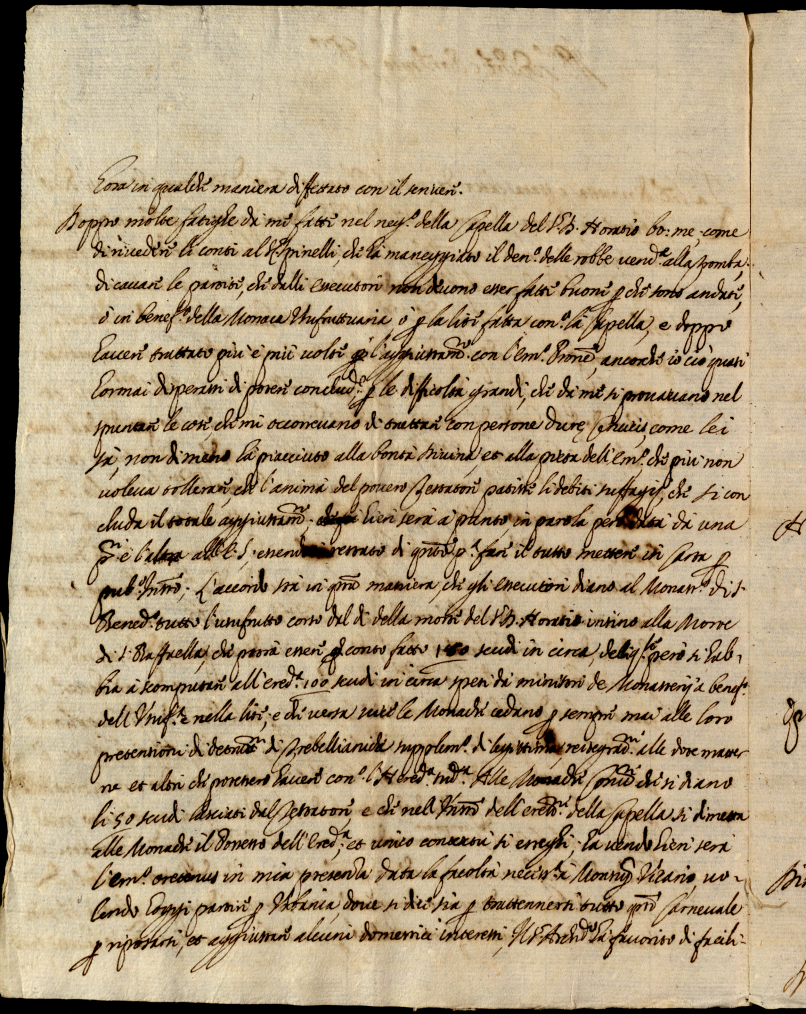 hora in qualche maniera diffettato con il scriver.
Doppo molte fatighe da me fatte nel neg.º della Capella del S.r D. Horatio bo: me: come
di riveder li conti al Spinelli, che ha maneggiato il den.º delle robbe vend.te alla tromba
di cavare le partite, che dalli essecutori non devono esser fatte buone p che sono andate,
ò in benef.º della Monaca Usufruttuaria ò p la lite fatta con.º la Capella, e doppo
haver trattato più e più volte p l'aggiustam.to con l'em.º ancorche io ciò quasi
hormai disperassi di poter conclud.e p le difficoltà grandi, che da me si provavano nel
spuntare le cose, che mi occorrevano di trattare con persone dure come lei
sà, non di meno hà piacciuto alla bontà Divina, et alla pietà dell'em.º che più non
voleva tollerare che l'anima del povero Testatore patisse li debiti suffragij, che si con
cluda il totale aggiustam.to hieri sera à punto in parola data da una
p.te e l'altra restato di q.to p.º fare il tutto mettere in Carta p
pub.º Instro. L'accordo stà in q.ta maniera, che gli essecutori diano al Monast.º di S.
Bened.º tutto l'usufrutto corso dal dì della morte del S.r D. Horatio insino alla Morte
di S. Raffaella, che potrà essere p conto fatto 150 scudi in circa, però si hab-
bia à scomputare all'ered.tà 100 scudi in circa spesi da ministri de Monasterij à benef.º
dell'Usuf.a nella lite; e che versa vice le Monache cedano p sempre mai alle loro
pretensioni di detratt.ne di Trebellianica supplem.º di legittima, reintegrat.ne alle dote mater
ne et altri che potessero havere con.º l'Hered.tà sud.a Alle Monache che si diano
li 50 scudi lasciati dal Testatore, e che nell' Instro dell'erett.ne della Capella si dimetta
alle Monache il dell'ered.tà et unico si erreghi; havendo hieri sera
l'em.º in mia presenza data la facoltà necess.a à Monsig.r Vicario vo-
lendo hoggi partire p Urbania, dove si dice stia p trattenersi tutto q.to Carnevale
p riposarsi, et aggiustare alcuni domestici interessi, Il S.r Arcid.no hà favorito di facili-